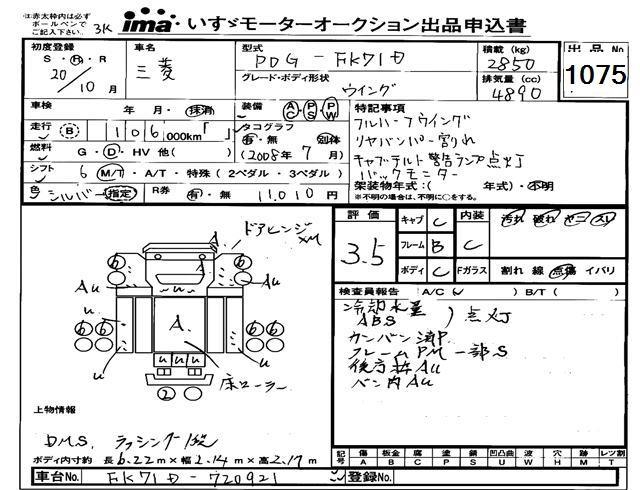 注:赤太枠内は必ず
ボールペンで
ご記入下さい。
3K
ima いすゞモーターオークション出品申込書
初度登録
S・H・R
20/10月
車名
三菱
型式
PDG-FK71D
グレード・ボディ形状
ウイング
積載(kg)
2850
排気量(cc)
4890
出品No
1075
車検 年・月・抹消
装備 AC・PS・PW
特記事項
フルハーフウイング
リヤバンパー割れ
キャブチルト警告ランプ点灯
バックモニター
走行 B 106000km「 」
タコグラフ
有・無 別体
(2008年7月)
燃料 G・D・HV 他( )
シフト 6 M/T・A/T・特殊(2ペダル・3ペダル)
架装物年式:( 年式)・不明
※不明の場合は、不明に○をする。
色 シルバー 指定 R券 有・無 11,010円
評価 3.5
キャブ C
フレーム B
ボディ C
内装 C
汚れ 破れ ヤニ スレ
Fガラス 割れ 線 点傷 イバリ
検査員報告 A/C(レ )B/T( )
冷却水量
ABS )点灯
カンバン済P.
フレームPM一部S
後方Au
バン内Au
ドアヒンジ
XM
6 6
Au Au
u u
A.
6 6 6 6
u u u u u
2
床ローラー
上物情報
D.M.S. ラッシング1段
ボディ内寸約 長6.22m×幅2.14m×高2.17m
記号 傷A 板金B 腐C 塗P 錆S 凹凸曲U 波W 穴H 跡M レンズ割T
車台No. FK71D-720921
登録No.